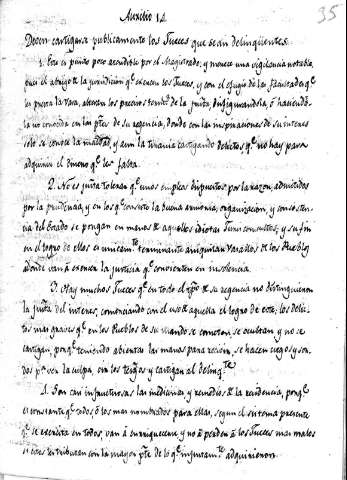 Auxilio 14
35
Deven castigarse publicamente los Jueces que sean delinquentes.
1. Este es punto poco accesible por el Magistrado, y merece una vigilancia notable,
pues al abrigo de la jurisdiccion qe exercen los Jueces, y con el refugio de las
les presta la Vara, alteran los precios de la justa desfigurandola, ó haciendo
la no conocida en las ptes de su regencia, donde con las inspiraciones de su interes
solo se conoce la maldad, y aun la tirania castigando delictos qe no hay para
adquirir el dinero qe les falta.
2. No es justo tolerar qe unos empleos dispuestos por la razon, admitidos
por la prudencia, y en los qe consiste la buena armonia, organizacion, y consisten
cia del Estado se pongan en manos de aquellos idiotas sumo consultos, y su fin
en el logro de ellos es unicamte terminante aniquilar Vasallos de los Pueblos
donde van á exercer la justicia qe consienten en insolencia.
3. Hay muchos Jueces qe en todo el tpo de su regencia no distinguieron
la justa del interes, comenciando con el uso de aquella el logro de este; los delic
tos mas graves qe en los Pueblos de su mando se cometen, se ocultan y no se
castigan, porqe teniendo abiertas las manos para recivir, se hacen ciegos y sor
dos pa ver la culpa, oir los testigos y castigar al delinqte
4. Son casi infructuosas las medicinas, y remedios de la residencia, porqe
es constante qe todos ó los mas nombrados para ellas, segun el sistema presente
qe se exercita en todos, van á enriquecerse, y no á perder á los Jueces mas malos
si estos contribuien con la mayor pte de lo qe injustamte adquirieron.